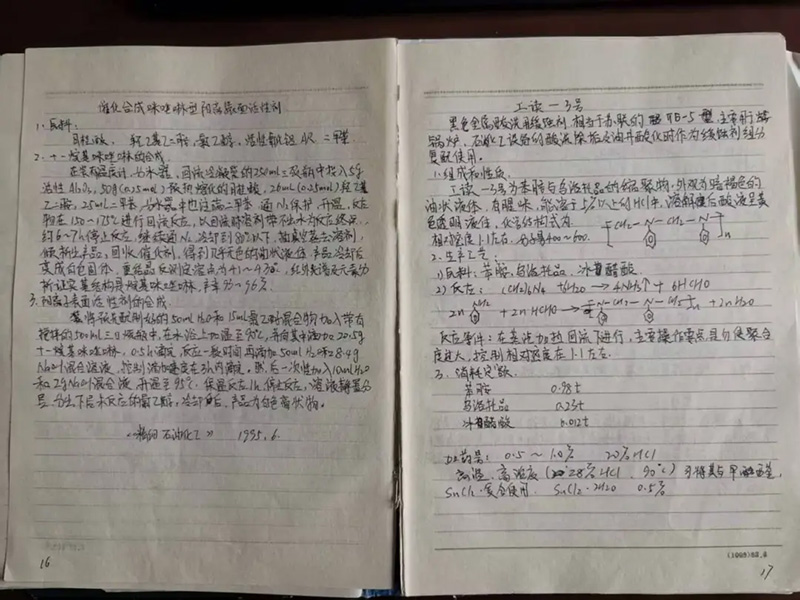 催化合成咪唑啉型阳离子表面活性剂
1. 原料:
月桂酸、羟乙基乙二胺、氯乙醇、活性氧化铝 AR、二甲苯
2. 十一烷基咪唑啉的合成
在装有温度计、分水器、回流冷凝管的250ml三颈瓶中投入5g
活性Al₂O₃, 50g(0.25mol)熔化的月桂酸, 26ml(0.25mol)羟乙基
乙二胺, 25ml二甲苯, 分水器中也注满二甲苯. 通N₂保护, 升温, 反应
在150~175℃进行回流反应, 以回流的溶剂带不出水为反应终点.
约6~7h停止反应, 继续通N₂冷却到80℃以下, 抽真空蒸去溶剂,
倾析出产品, 回收催化剂, 得到几乎无色的油状液体, 产品冷却后
变成白色固体, 重结晶后测定熔点为41~43℃, 红外光谱及元素分
析证实其结构为烷基咪唑啉, 产率为~96%.
3. 阳离子表面活性剂的合成
50ml H₂O和15ml氯乙醇混合物加入带有
搅拌的500ml三口烧瓶中, 在水浴上加温至90℃, 再向其中滴加20.5g
十一烷基咪唑啉, 0.5h滴完, 反应一段时间再滴加50ml H₂O和28.4g
NaOH混合溶液, 控制滴加速度在3h内滴完. 然后一次性加入10ml H₂O
和2g NaOH混合液, 升温至95℃, 保温反应1h停止反应, 溶液静置分
层, 分出下层未反应的氯乙醇, 冷却后, 产品为白色膏状物.
石油化工》 1995.6.
16
工读—3号
黑色金属酸洗用缓蚀剂, 相当于苏联的 ПБ-5 型, 主要用于
锅炉、石油化工设备的酸洗除垢及油井酸化时作为缓蚀剂组分
复配使用.
1. 组成和性质
工读—3号为苯胺与乌洛托品的缩聚物, 外观为暗褐色的
油状液体, 有腥味, 能溶于5%以上的HCl中, 溶解后酸液呈黄
色透明液体, 化学结构式为
相对密度1.1左右, 分子量400~600. [CH₂—N—CH₂—N]n
2. 生产工艺:
1) 原料: 苯胺、乌洛托品、冰醋酸
2) 反应: (CH₂)₆N₄ + 6H₂O → 4NH₃↑ + 6HCHO
2n NH₂ + 2n HCHO → [CH₂—N—CH₂]n + 2n H₂O
反应条件: 在蒸汽加热回流下进行, 主要操作要点是勿使聚合
度过大, 控制相对密度在1.1左右.
3. 消耗定额
苯胺 0.98t
乌洛托品 0.23t
冰醋酸 0.012t
加药量: 0.5~1.0% 20% HCl
高温、高浓度 (28% HCl, 90℃) 可将其与甲醛
SnCl₂复合使用. SnCl₂·2H₂O 0.5%
17